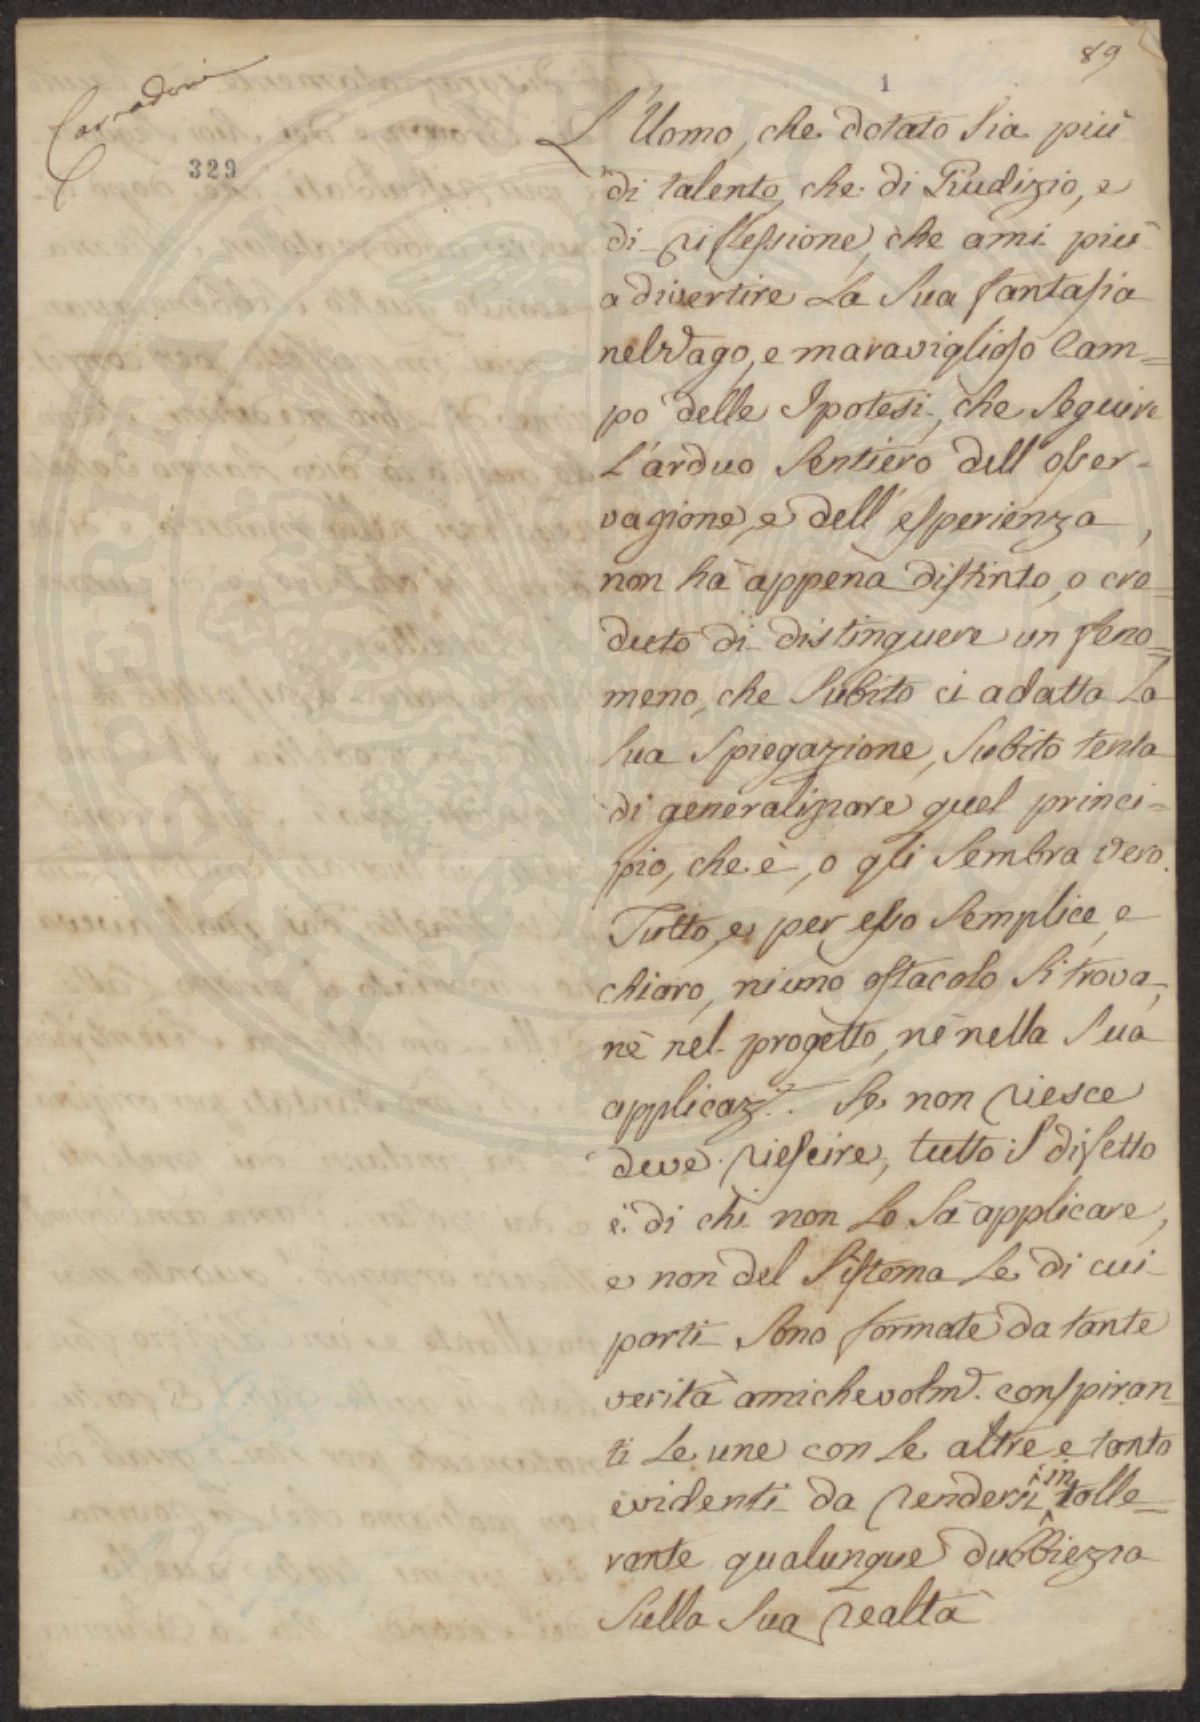 89
1
Carradori
329
L'Uomo, che dotato sia più
di talento, che di Giudizio, e
di riflessione, che ami più
a divertire la sua fantasia
nel vago, e maraviglioso Cam=
po delle Ipotesi, che seguire
l'arduo sentiero dell'osser-
vazione, e dell'esperienza,
non hà appena distinto, o cre-
duto di distinguere un feno=
meno, che subito ci adatta la
sua spiegazione, subito tenta
di generalizzare quel princi-
pio, che è, o gli sembra vero.
Tutto, e per esso semplice, e
chiaro, niuno ostacolo si trova,
nè nel progetto, nè nella sua
applicaz.e. Se non riesce
deve riescire, tutto il difetto
è di chi non lo sà applicare,
e non del sistema le di cui
parti sono formate da tante
verità amichevolm.e conspiran-
ti le une con le altre e tanto
evidenti da rendersi in tolle=
rante qualunque dubbiezza
sulla sua realtà